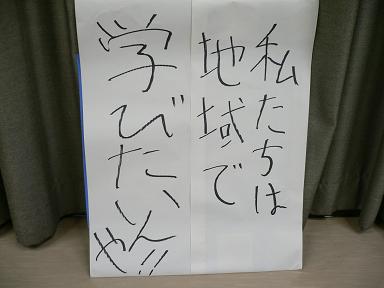 私たちは
地域で
学びたいん
や!!